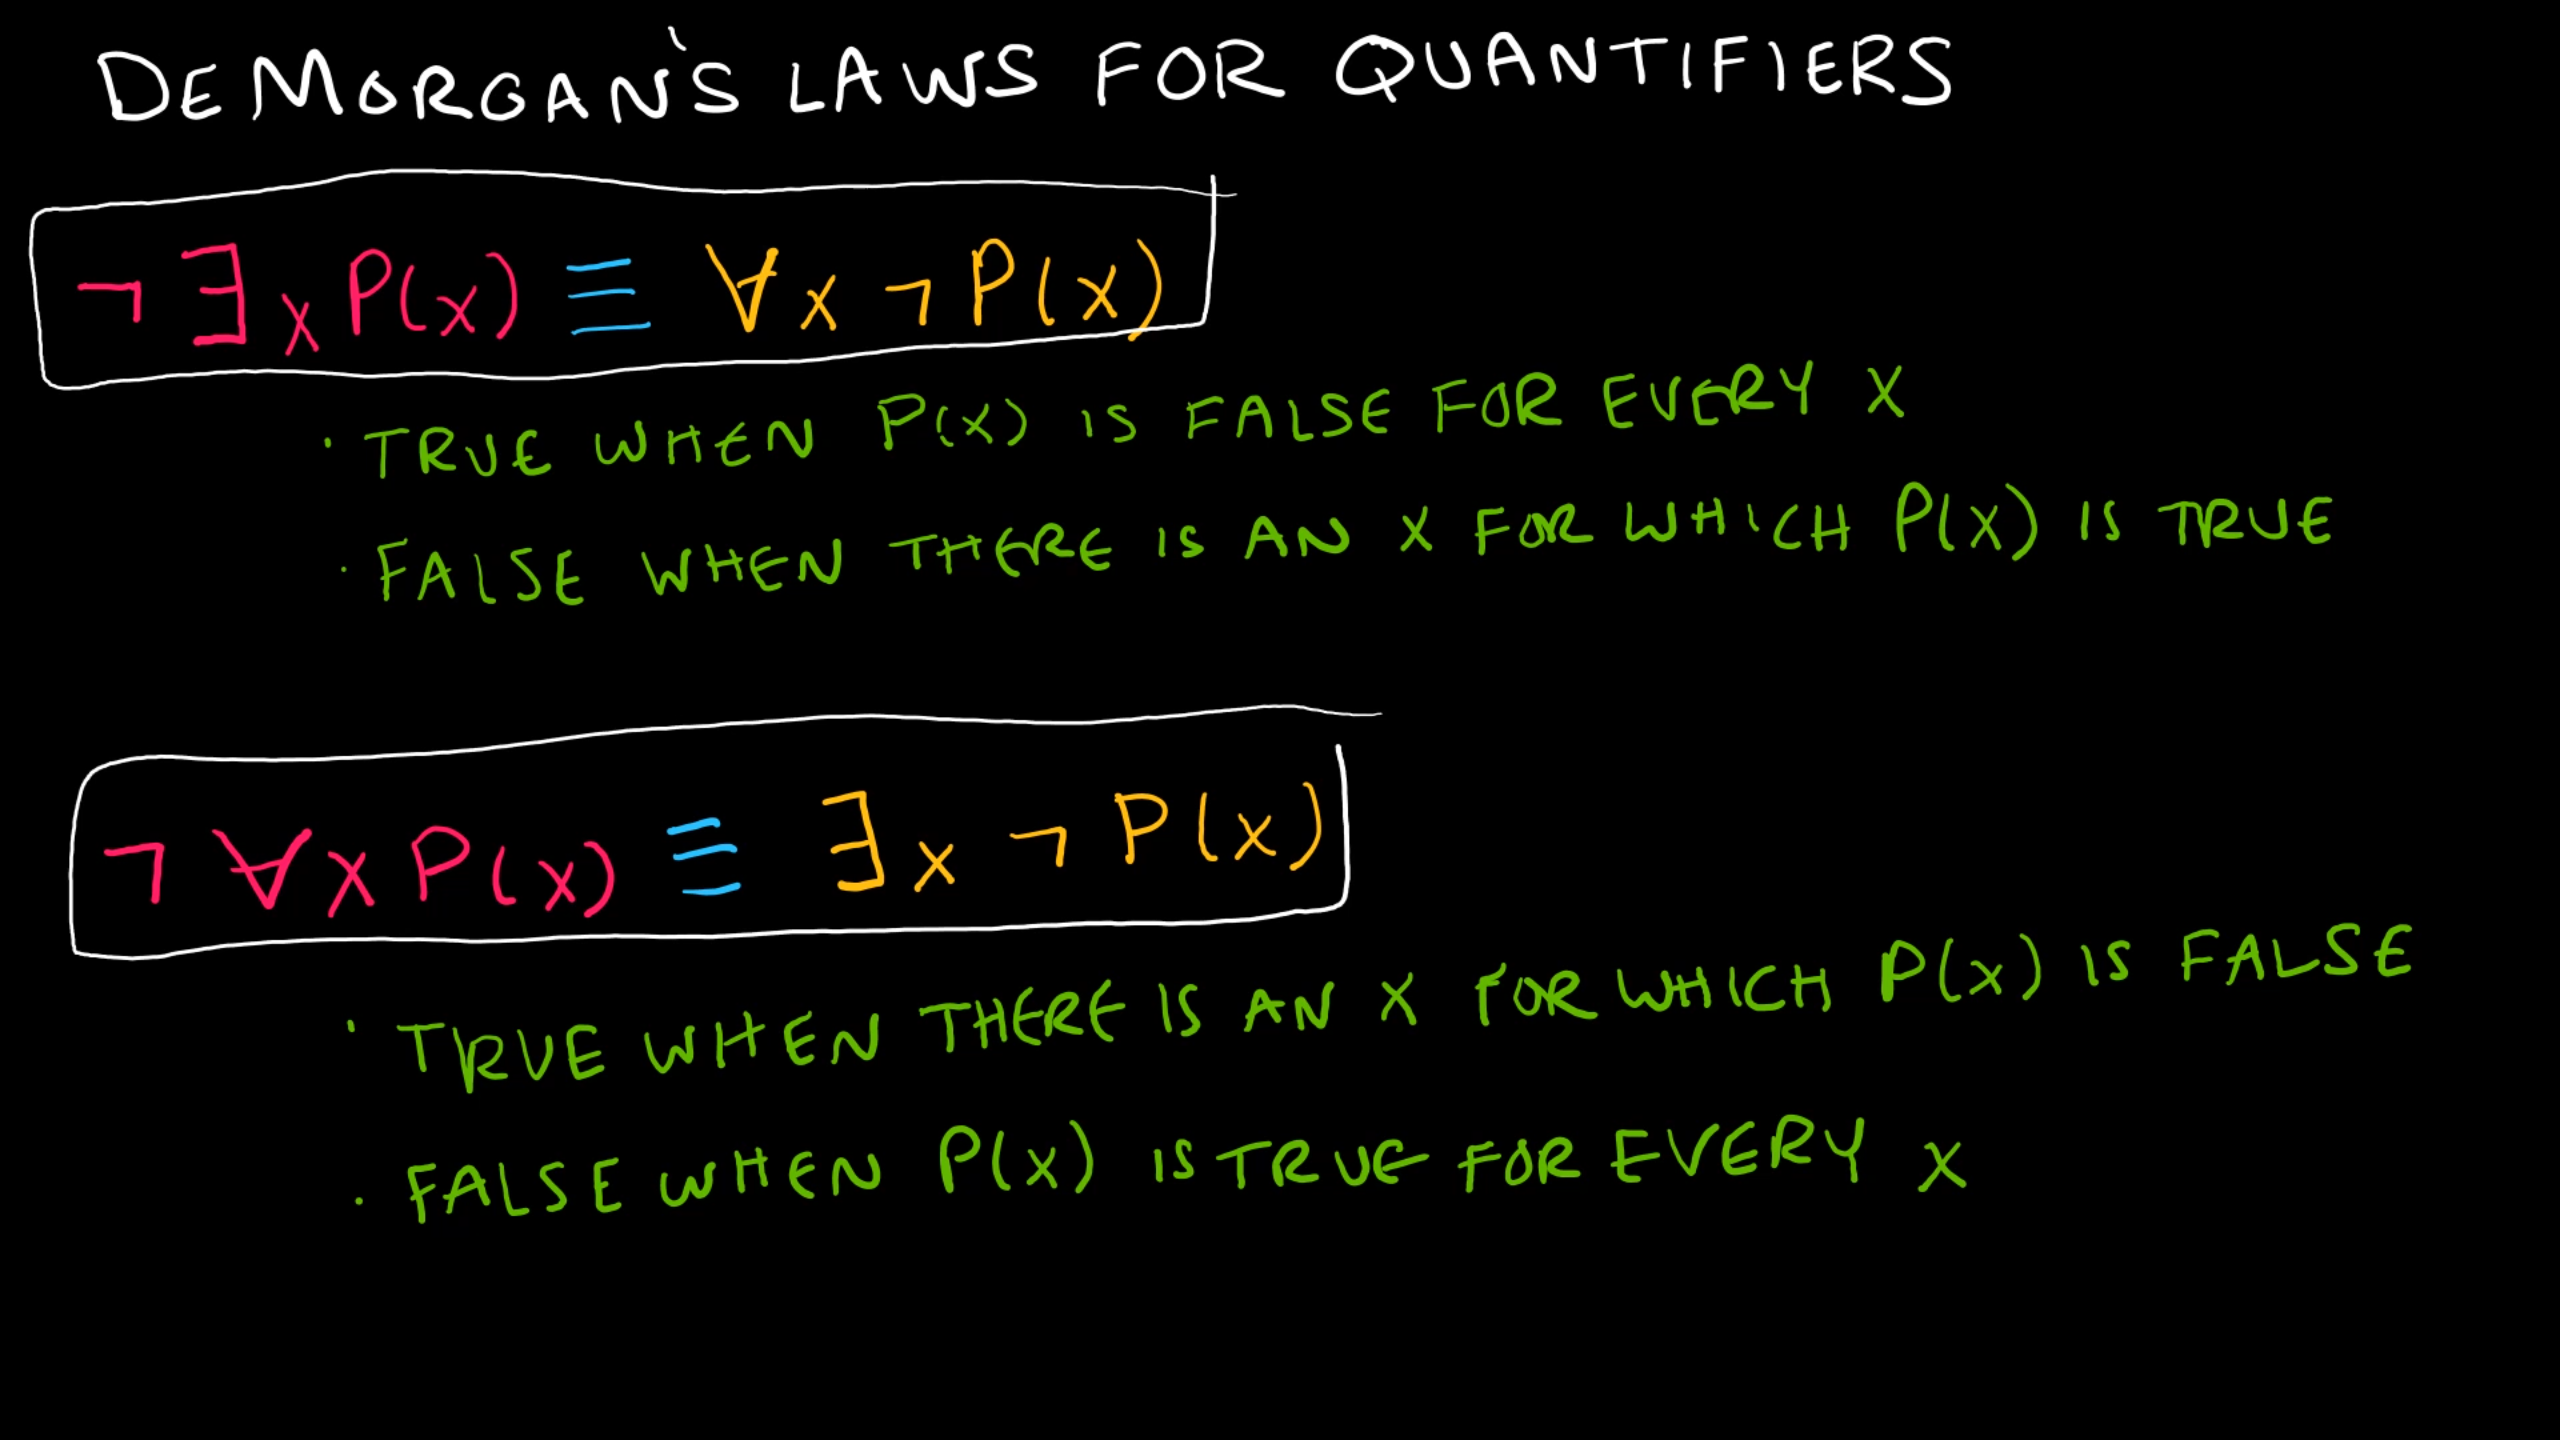 DEMORGAN'S LAWS FOR QUANTIFIERS
¬∃x P(x) ≡ ∀x ¬P(x)
· TRUE WHEN P(x) IS FALSE FOR EVERY X
· FALSE WHEN THERE IS AN X FOR WHICH P(x) IS TRUE
¬∀x P(x) ≡ ∃x ¬P(x)
· TRUE WHEN THERE IS AN X FOR WHICH P(x) IS FALSE
· FALSE WHEN P(x) IS TRUE FOR EVERY X